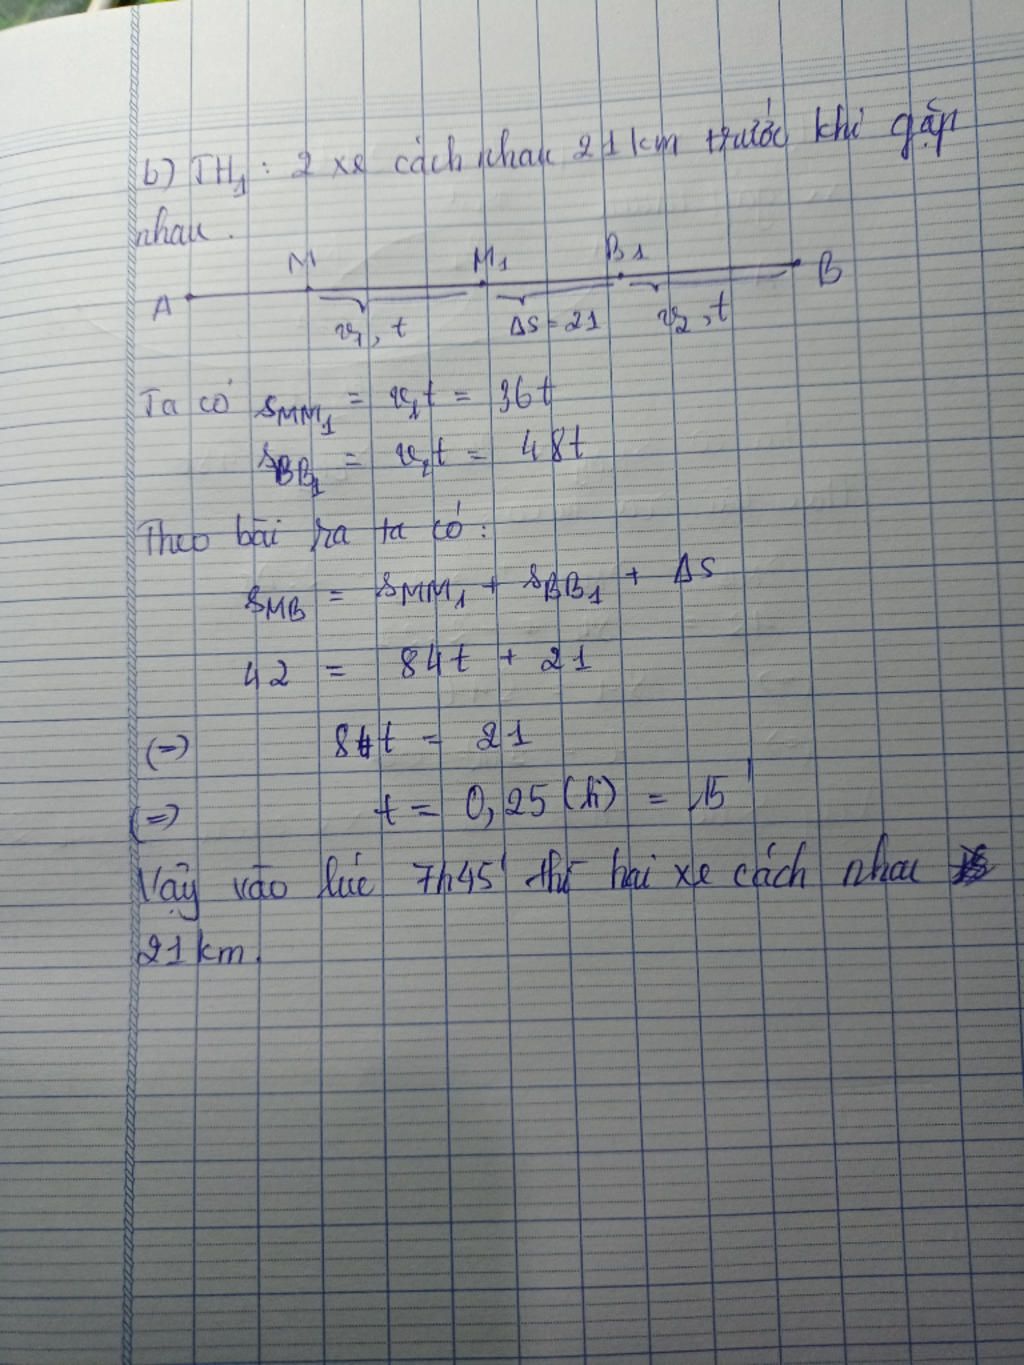 b) TH₁: 2 xe cách nhau 21km trước khi gặp
nhau.
A M M₁ B₁ B
v₁, t ΔS = 21 v₂, t
Ta có s_MM₁ = v₁t = 36t
s_BB₁ = v₂t = 48t
Theo bài ra ta có:
s_MB = s_MM₁ + s_BB₁ + ΔS
42 = 84t + 21
(=) 84t = 21
(=) t = 0,25 (h) = 15'
Vậy vào lúc 7h45' thì hai xe cách nhau
21km.